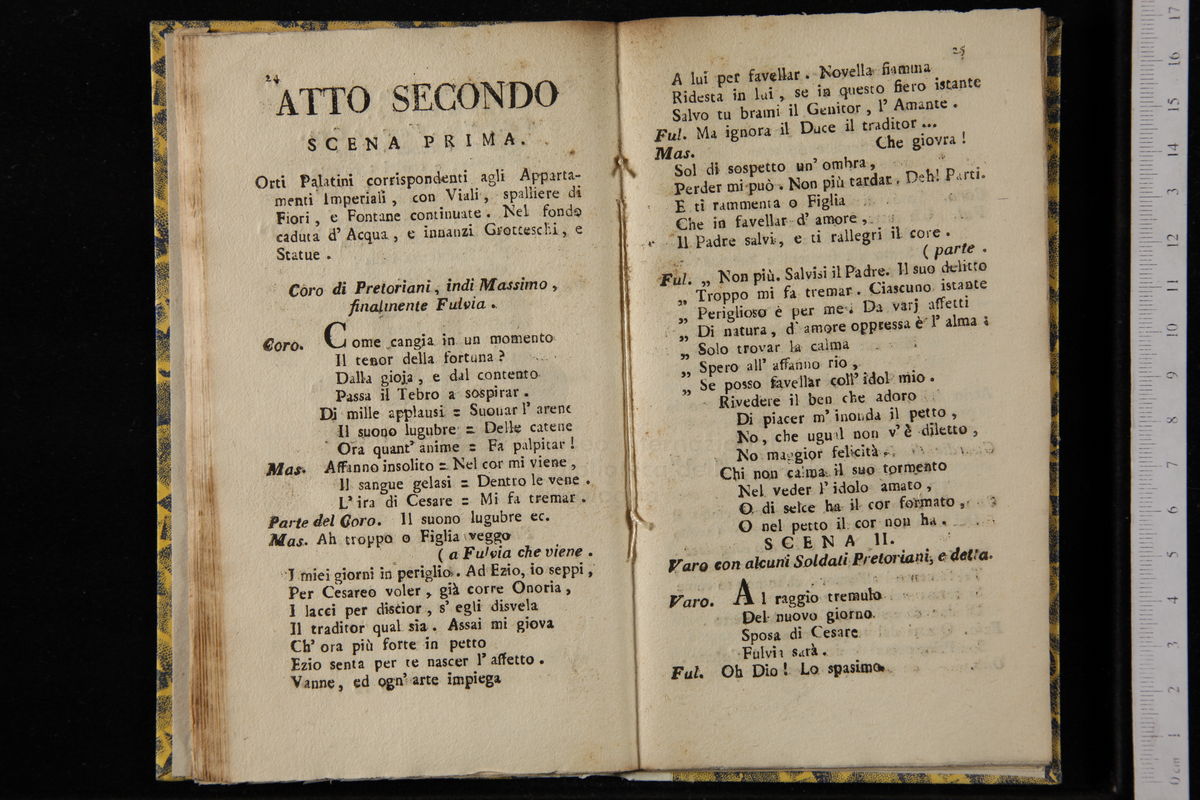 24
ATTO SECONDO
SCENA PRIMA.
Orti Palatini corrispondenti agli Apparta-
menti Imperiali, con Viali, spalliere di
Fiori, e Fontane continuate. Nel fondo
caduta d'Acqua, e innanzi Grotteschi, e
Statue.
Coro di Pretoriani, indi Massimo,
finalmente Fulvia.
Coro. Come cangia in un momento
Il tenor della fortuna?
Dalla gioja, e dal contento
Passa il Tebro a sospirar.
Di mille applausi = Suonar l'arene
Il suono lugubre = Delle catene
Ora quant'anime = Fa palpitar!
Mas. Affanno insolito = Nel cor mi viene,
Il sangue gelasi = Dentro le vene.
L'ira di Cesare = Mi fa tremar.
Parte del Coro. Il suono lugubre ec.
Mas. Ah troppo o Figlia veggo
(a Fulvia che viene.
I miei giorni in periglio. Ad Ezio, io seppi,
Per Cesareo voler, già corre Onoria,
I lacci per discior, s'egli disvela
Il traditor qual sia. Assai mi giova
Ch'ora più forte in petto
Ezio senta per te nascer l'affetto.
Vanne, ed ogn'arte impiega
25
A lui per favellar. Novella fiamma
Ridesta in lui, se in questo fiero istante
Salvo tu brami il Genitor, l'Amante.
Ful. Ma ignora il Duce il traditor...
Mas. Che giovra!
Sol di sospetto un'ombra,
Perder mi può. Non più tardar. Deh! Parti.
E ti rammenta o Figlia
Che in favellar d'amore,
Il Padre salvi, e ti rallegri il core.
(parte.
Ful. „ Non più. Salvisi il Padre. Il suo delitto
„ Troppo mi fa tremar. Ciascuno istante
„ Periglioso è per me: Da varj affetti
„ Di natura, d'amore oppressa è l'alma:
„ Solo trovar la calma
„ Spero all'affanno rio,
„ Se posso favellar coll'idol mio.
Rivedere il ben che adoro
Di piacer m'inonda il petto,
No, che ugual non v'è diletto,
No maggior felicità.
Chi non calma il suo tormento
Nel veder l'idolo amato,
O di selce ha il cor formato,
O nel petto il cor non ha.
SCENA II.
Varo con alcuni Soldati Pretoriani, e detta.
Varo. Al raggio tremulo
Del nuovo giorno
Sposa di Cesare
Fulvia sarà.
Ful. Oh Dio! Lo spasimo
17
16
15
14
13
12
11
10
9
8
7
6
5
4
3
2
1
0 cm